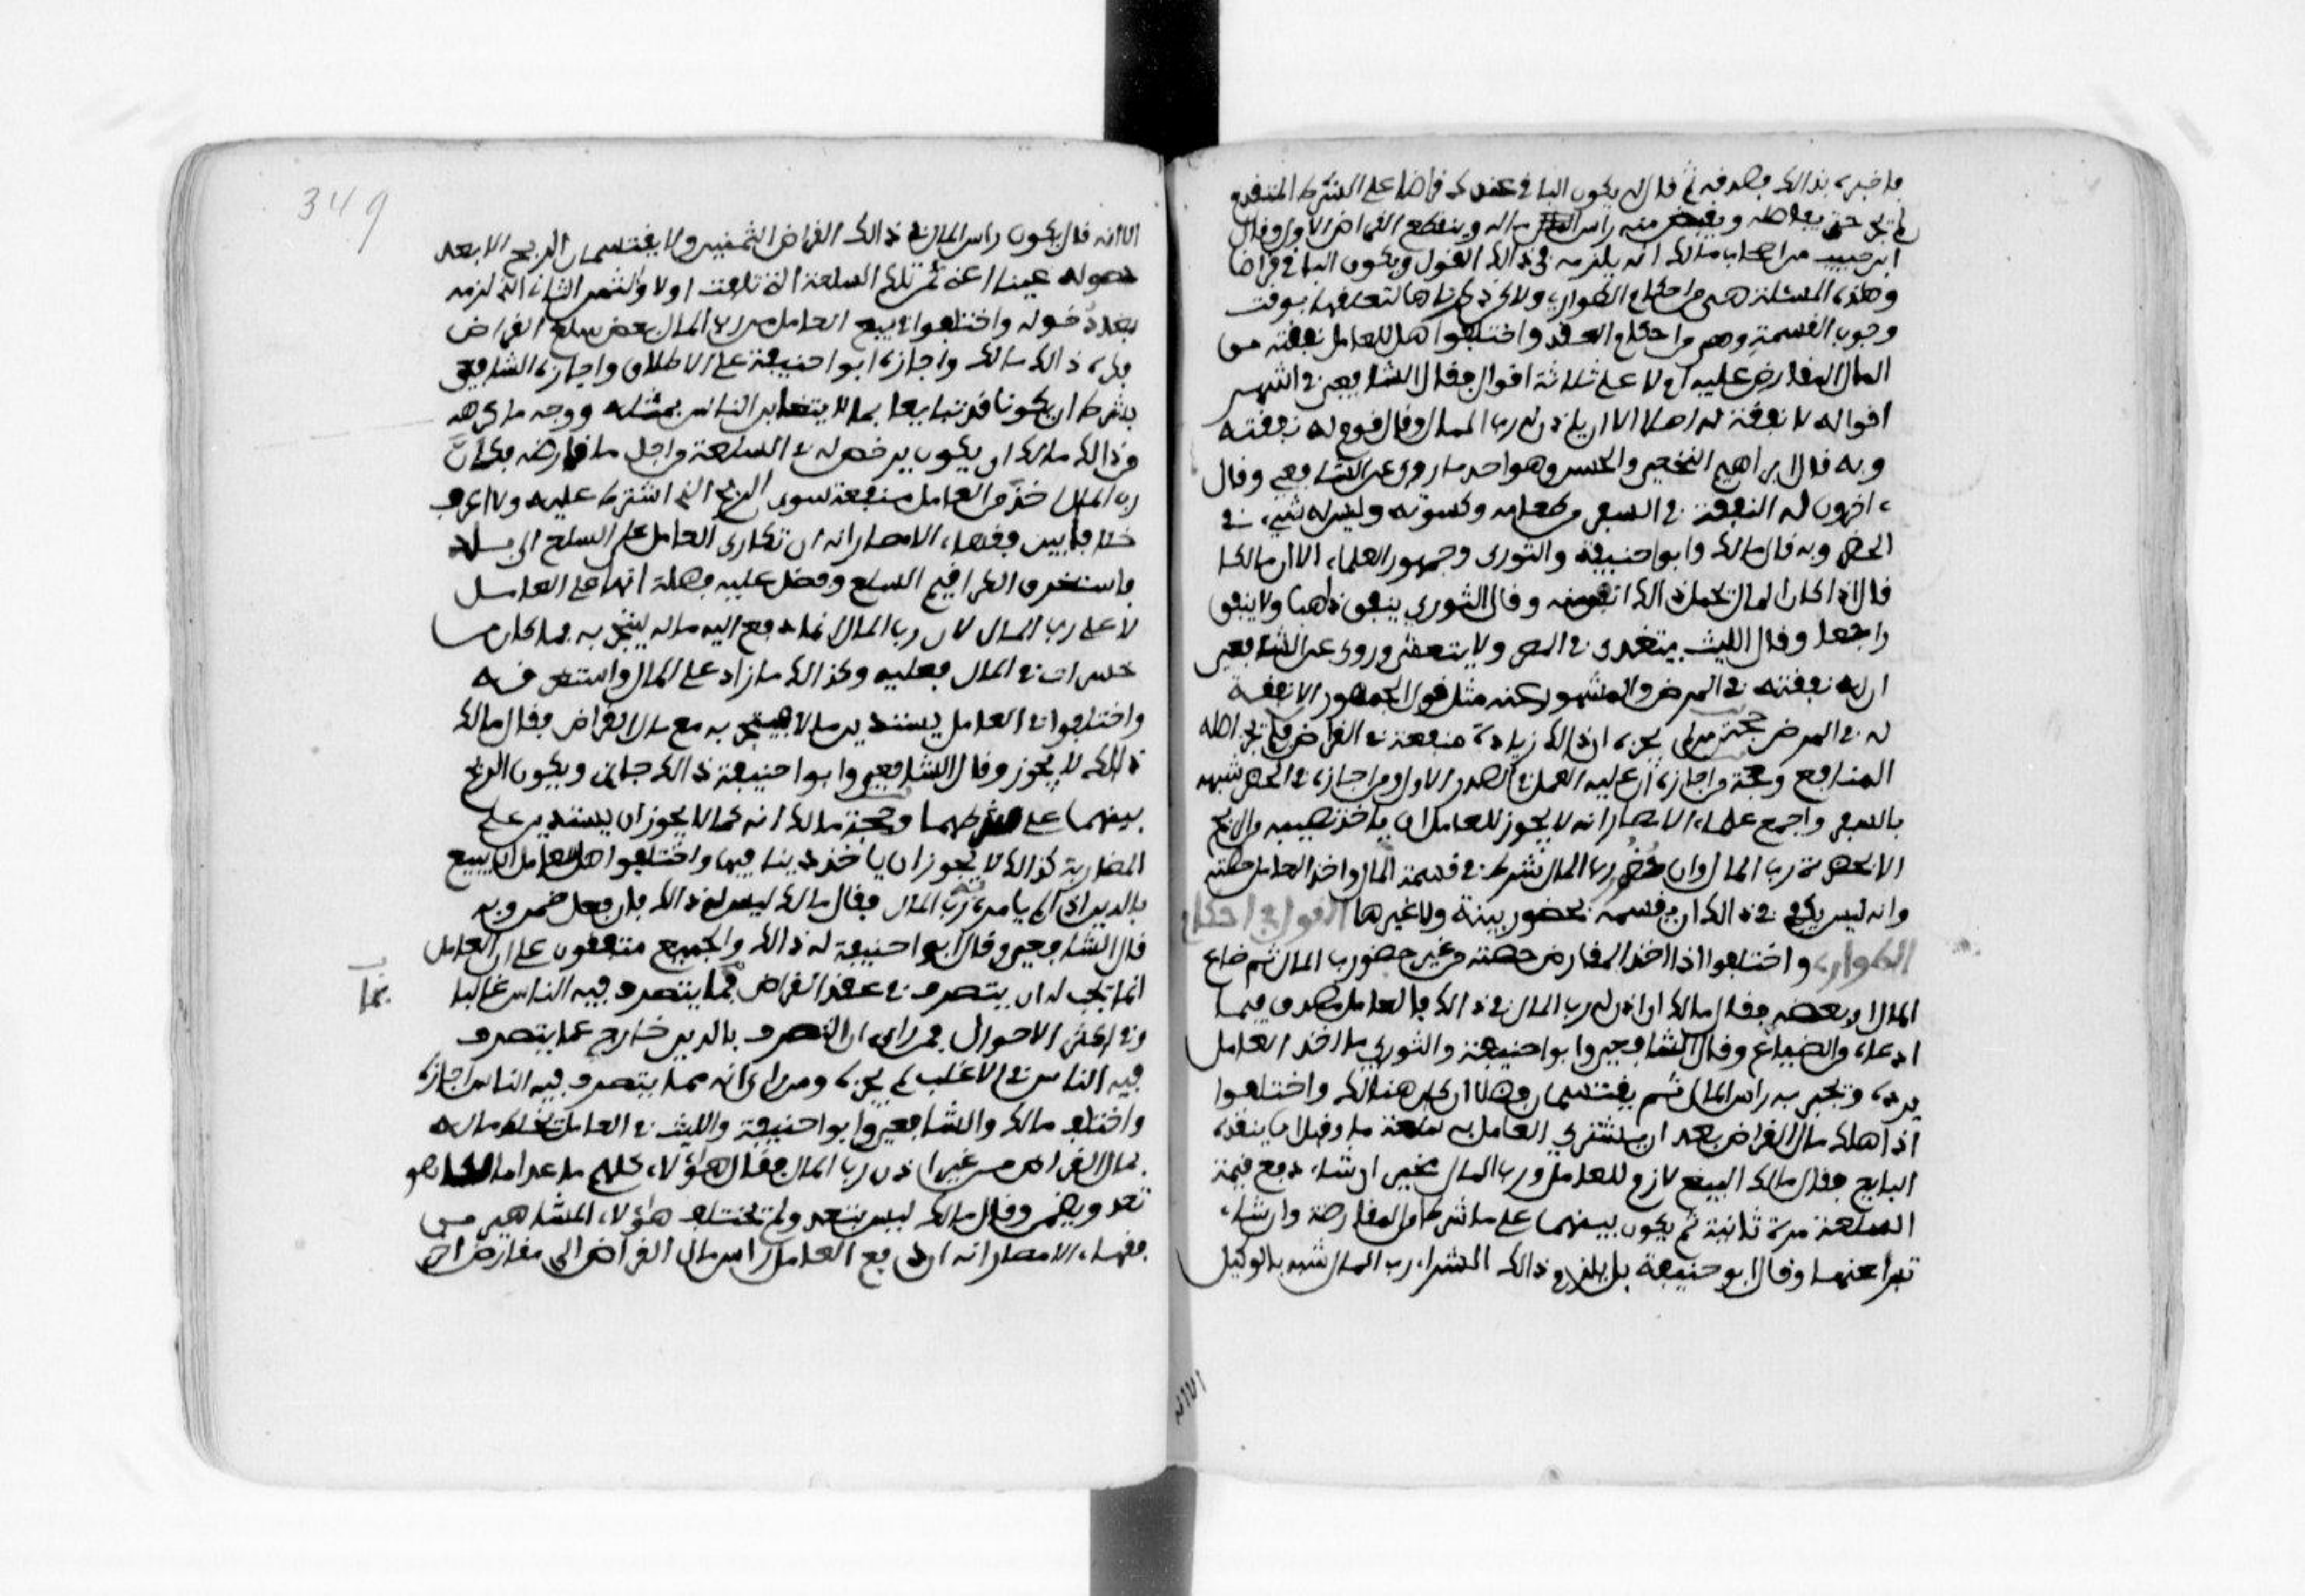 فاخبره بذالك فصدفه ثم فال له يكون الباقي عندك فراضا على الشرط المتفدم
لم يجز حتى يفاصله ويفبض منه راس ماله وينفطع الفراض الاول وفال
ابن حبيب من اصحاب مالك انه يلزمه في ذالك الفول ويكون الباقي فراضا
وهذه المسئلة هي من احكام الطواري ولاكن ذكرناها لتعلفها بوفت
وجوب الفسمة وهي من احكام العفد واختلفوا هل للعامل نففته من
المال المفارض عليه ام لا على ثلاثة افوال ففال الشافعي في اشهر
افواله لا نففة له اصلا الا ان ياذن له رب المال وفال فوم له نففته
وبه فال ابراهيم النخعي والحسن وهو احد ما روى عن الشافعي وفال
ءاخرون له النففة في السفر من طعامه وكسوته وليس له شيء في
الحضر وبه فال مالك وابو حنيفة والثوري وجمهور العلماء الا ان مالكا
فال اذا كان المال يحمل ذالك وفال الثوري ينفق ذاهبا ولا ينفق
راجعا وفال الليث يتغدى في المصر ولا يتعشى وروى عن الشافعي
ان له نففته في المرض والمشهور عنه مثل فول الجمهور الا نففة
له في المرض وحجة من لم يجزه ان ذالك زيادة منفعة في الفراض فلم يجز اصله
المنافع وحجة من اجازه ان عليه العمل في الصدر الاول ومن اجازه في الحضر شبهه
بالسفر واجمع علماء الامصار انه لا يجوز للعامل ان ياخذ نصيبه من الربح
الا بحضرة رب المال وان حضور رب المال شرط في فسمة المال واخذ العامل حصته
وانه ليس يكفي في ذالك ان يفسمه بحضور بينة ولا غيرها الفول في احكام
الطواري واختلفوا اذا اخذ المفارض حصته من غير حضور رب المال ثم ضاع
المال او بعضه ففال مالك ان اذن له رب المال في ذالك فالعامل مصدق فيما
ادعاه من الضياع وفال الشافعي وابو حنيفة والثوري ما اخذ العامل
يرده ويجبر به راس المال ثم يفتسمان فضلا ان كان هنالك واختلفوا
اذا هلك مال الفراض بعد ان يشتري العامل به سلعة ما وفبل ان ينفده
البايع ففال مالك البيع لازم للعامل ورب المال مخير ان شاء دفع فيمة
السلعة مرة ثانية ثم يكون بينهما على ما شرطا من المفارضة وان شاء
تبرا عنهما وفال ابو حنيفة بل يلزم ذالك الشراء رب المال شبه بالوكيل
349
الا انه فال يكون راس المال في ذالك الفراض الثمنين ولا يفتسمان الربح الا بعد
حصوله عينا اعنى ثمن تلك السلعة التي تلفت اولا والثمن الثاني الذي لزمه
بعد ذخوله واختلفوا في بيع العامل من رب المال بعض سلع الفراض
فكره ذالك مالك واجازه ابو حنيفة على الاطلاق واجازه الشافعي
بشرط ان يكونا فد تبايعا بما لا يتغابن الناس بمثله ووجه ما كرهه
من ذالك مالك ان يكون يرخص له في السلعة من اجل ما فارضه فكان
رب المال اخذ من العامل منفعة سوى الربح الذي اشترط عليه ولا اعرف
خلافا بين ففهاء الامصار انه ان تكارى العامل على السلع الى بلد
فاستغرق الكرا فيم السلع وفضل عليه فضلة انها على العامل
لا على رب المال لان رب المال انما دفع اليه ماله ليتجر به فما كان من
خسران في المال فعليه وكذالك ما زاد على المال واستغرفه
واختلفوا في العامل يستدين مالا فيتجر به مع مال الفراض ففال مالك
ذالك لا يجوز وفال الشافعي وابو حنيفة ذالك جايز ويكون الربح
بينهما على شرطهما وحجة مالك انه كما لا يجوز ان يستدين على
المضاربة كذالك لا يجوز ان ياخذ دينا فيها واختلفوا هل للعامل ان يبيع
بالدين اذا لم يامره به رب المال ففال مالك ليس له ذالك فان فعل ضمن وبه
فال الشافعي وفال ابو حنيفة له ذالك والجميع متففون على ان العامل
انما يجب له ان يتصرف في عفد الفراض فيما يتصرف فيه الناس غالبا
بما
في اكثر الاحوال فمن راى ان التصرف بالدين خارج عما يتصرف
فيه الناس في الاغلب لم يجزه ومن راى انه مما يتصرف فيه الناس اجازه
واختلف مالك والشافعي وابو حنيفة والليث في العامل يخلط ماله
بمال الفراض من غير اذن رب المال ففال هؤلاء كلهم ما عدا مالكا هو
تعد ويضمن وفال مالك ليس بتعد ولم يختلف هؤلاء المشاهير من
ففهاء الامصار انه ان دفع العامل راس مال الفراض الى مفارض اخر